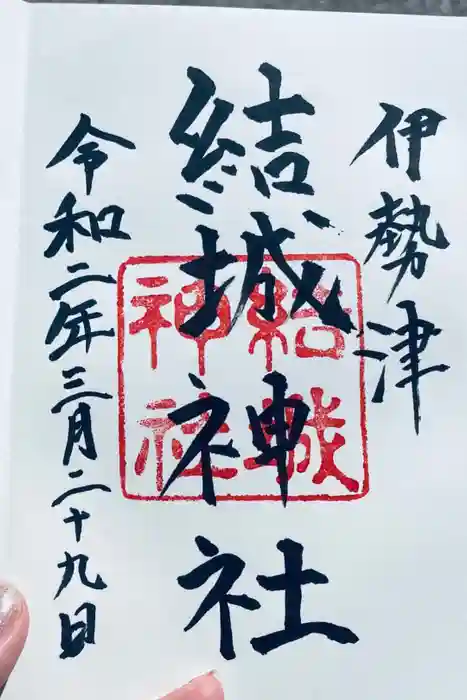 伊勢津
結城神社
結城
神社
令和二年三月二十九日